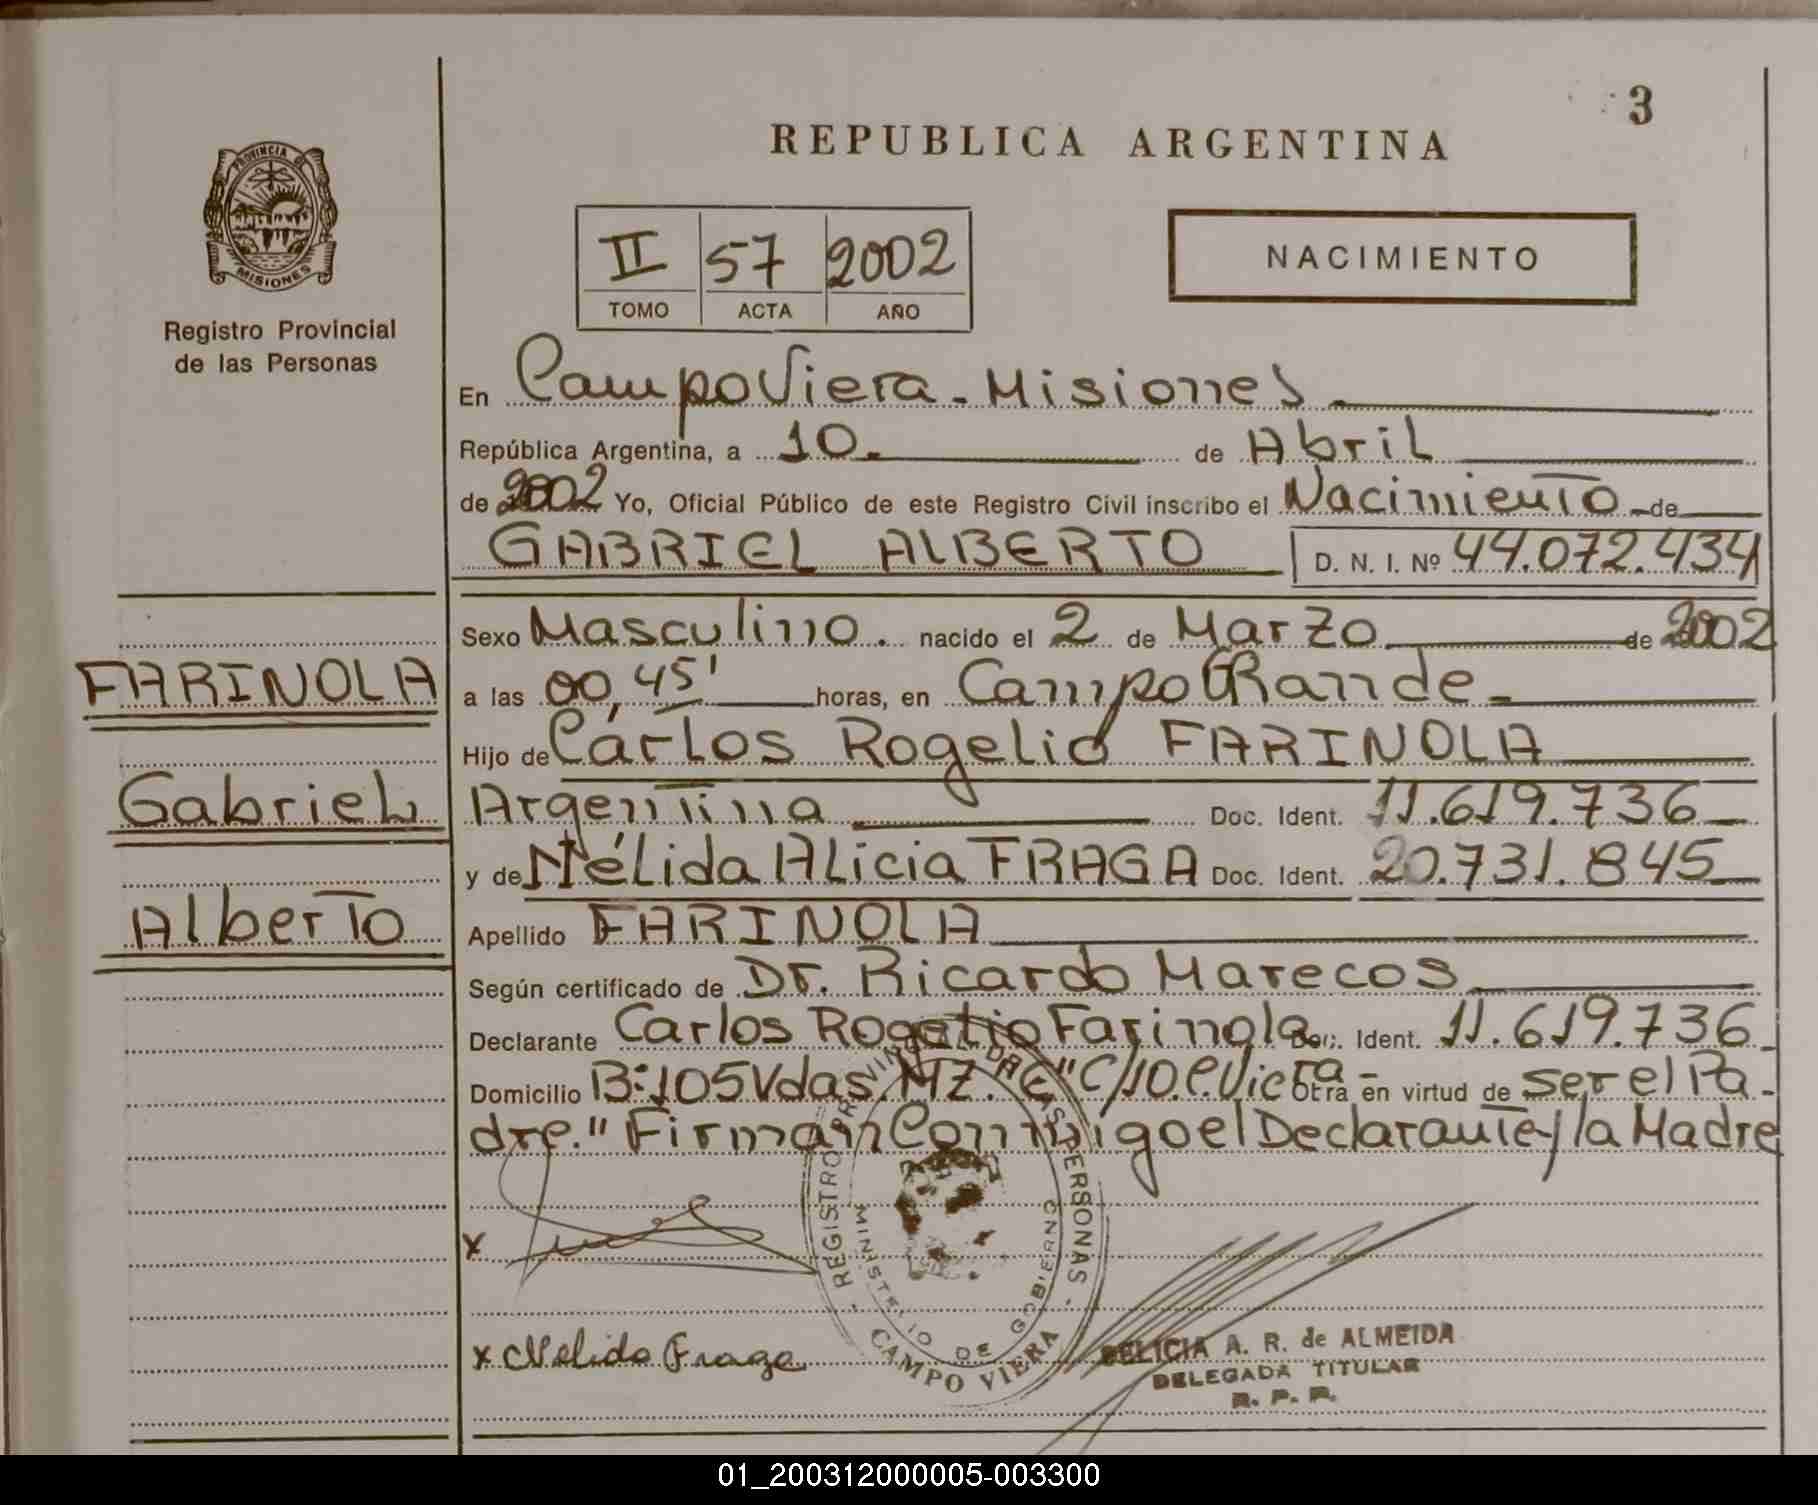 3
REPUBLICA ARGENTINA
PROVINCIA DE
MISIONES
Registro Provincial
de las Personas
II 57 2002
TOMO ACTA AÑO
NACIMIENTO
En Campo Viera - Misiones
República Argentina, a 10. de Abril
de 2002 Yo, Oficial Público de este Registro Civil inscribo el Nacimiento de
GABRIEL ALBERTO D. N. I. Nº 44.072.434
Sexo Masculino. nacido el 2 de Marzo de 2002
FARINOLA
a las 00,45' horas, en Campo GRande
Hijo de Carlos Rogelio FARINOLA
Gabriel
Argentina Doc. Ident. 11.619.736
y de Nélida Alicia FRAGA Doc. Ident. 20.731.845
Alberto
Apellido FARINOLA
Según certificado de Dr. Ricardo Marecos
Declarante Carlos Rogelio Farinola Doc. Ident. 11.619.736
Domicilio B: 105 Vdas. MZ. "C" C/10. C. Viera Obra en virtud de ser el Pa-
dre." Firman Conmigo el Declarante y la Madre
x
x Nelida Fraga
REGISTRO PROVINCIAL DE LAS PERSONAS
MINISTERIO DE GOBIERNO
CAMPO VIERA
DELICIA A. R. de ALMEIDA
DELEGADA TITULAR
R. P. P.
01_200312000005-003300